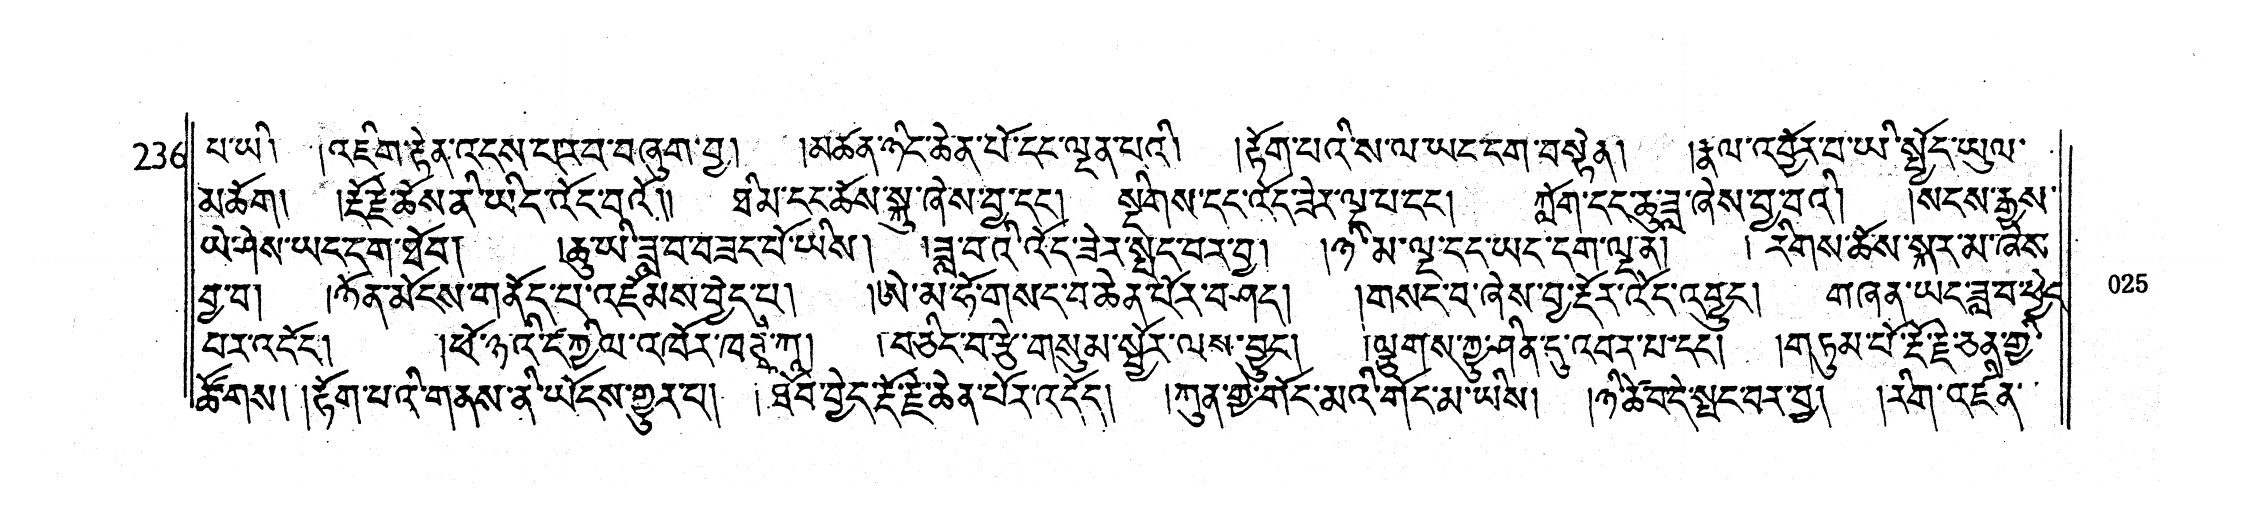 236 པ་ཡི། །འཇིག་རྟེན་འདས་པཟབ་བཞུག་བྱ། །མཚོན་ཉིད་ཆེན་པོ་དང་ལྡན་པའི། །རྟོག་པའི་ས་ལ་ཡང་དག་བསྟེན། །རྣལ་འབྱོར་བ་ཡི་སྤྱོད་ཡུལ་
མཆོག། །རྡོ་རྗེ་ཆོས་ནི་ཡིད་འོང་བའོ།། ཐིམ་དང་ཆོས་སྐུ་ཞེས་བྱ་དང། སྔགས་དང་འོད་ཟེར་ལྔ་པ་དང། ཀློག་དང་ཆུ་ཟླ་ཞེས་བྱ་བའི། །སངས་རྒྱས་
ཡེ་ཤེས་ཡང་དག་ཐོབ། །ཆུ་ཡི་ཟླ་བ་བཟང་པོ་ཡིས། །ཟླ་བའི་འོད་ཟེར་སྤང་བར་བྱ། །ཉི་མ་ལྔ་དང་ཡང་དག་ལྡན། །རིགས་ཆོས་སྐར་མ་ཞེས་
བྱ་བ། །ཉོན་མོངས་གནོད་པ་འཇོམས་བྱེད་པ། །ཨེ་མ་ཧོ་གསང་བ་ཆེན་པོར་བཤད། །གསང་བ་ཞེས་བྱ་རྡོར་འོད་འབྱུང། གཞན་ཡང་ཟླ་བ་ཕྱེད 025
བར་འདོད། །ཕོ་ཉ་འི་དཀྱིལ་འཁོར་ཁཊྭཾ་ཀཱ། །བཅིང་བ་རྩེ་གསུམ་སྦྱོར་ལས་བྱུང། །ལྕགས་ཀྱུ་ཤིན་ཏུ་འབར་པ་དང། །གཏུམ་པོ་རྡོ་རྗེ་ཅན་གྱི་
ཚོགས། །རྟོག་པའི་གནས་ནི་ཡོངས་གྱུར་པ། །ཐོབ་བྱེད་རྡོ་རྗེ་ཆེན་པོར་འདོད། །ཀུན་གྱི་གོང་མའི་གོང་མ་ཡིས། །ཉི་ཚེ་བདེ་སྤང་བར་བྱ། །རིག་འཛིན་